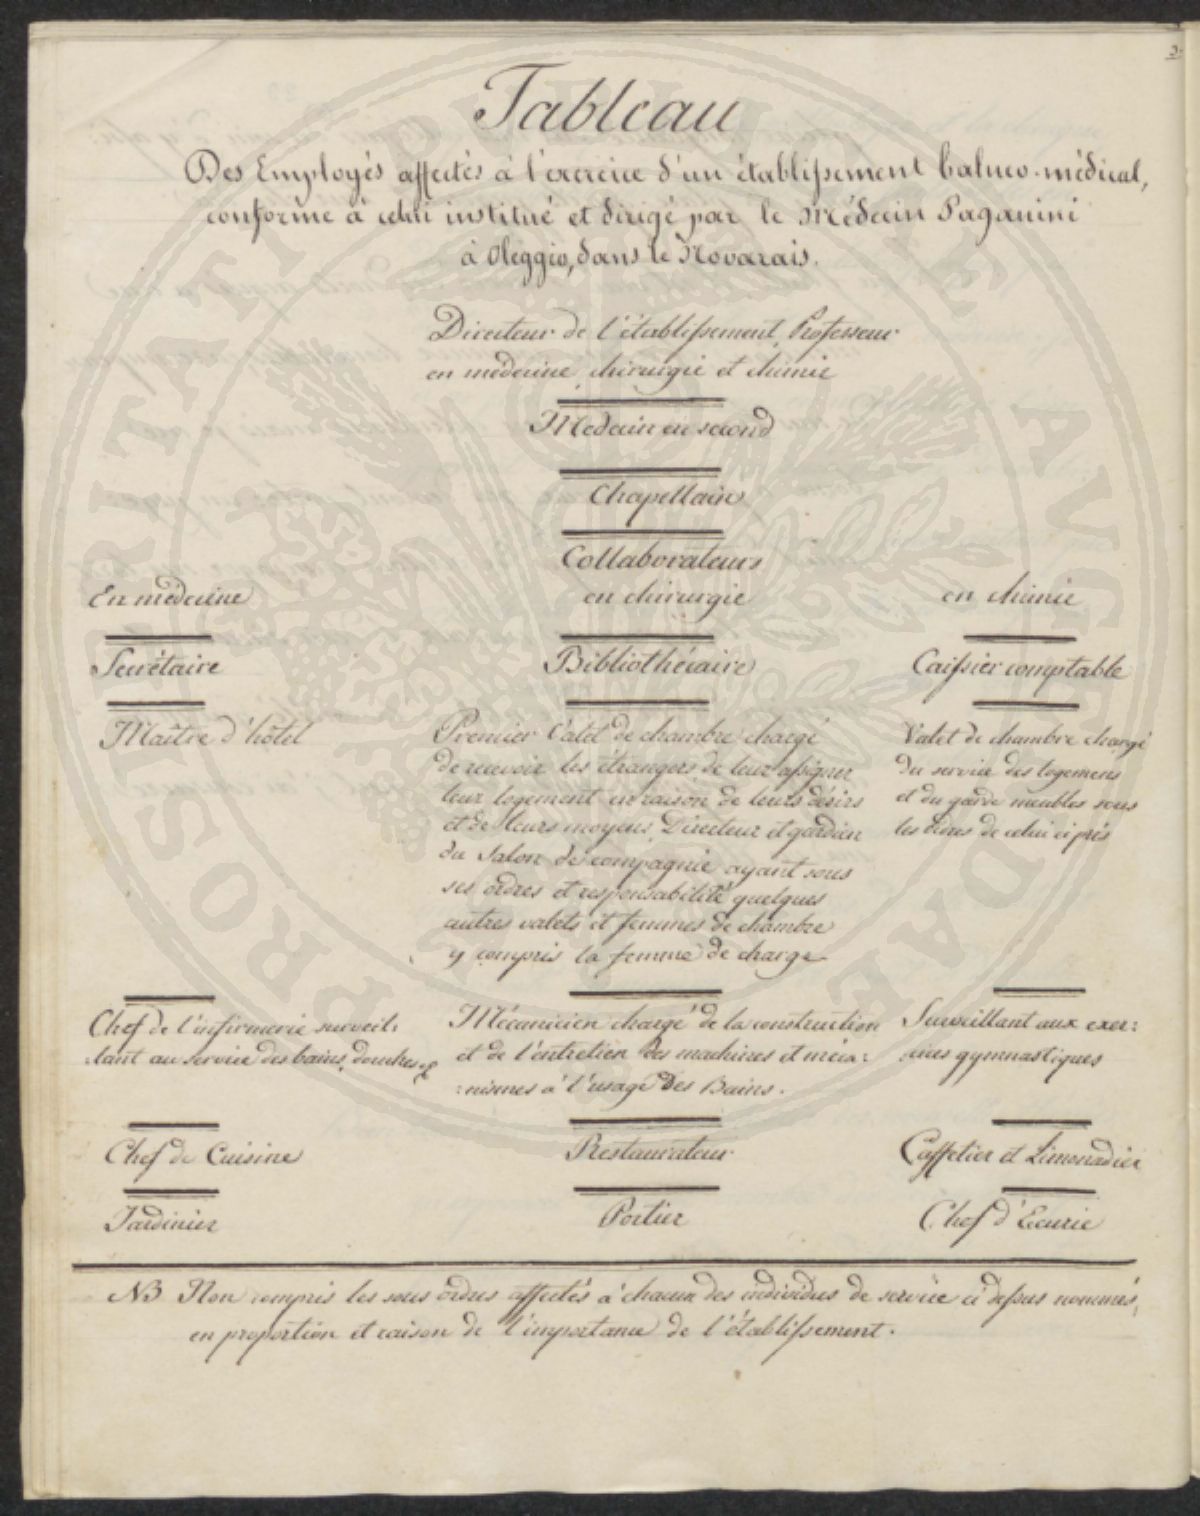 Tableau
Des Employés affectés à l'exercice d'un établissement balneo-médical,
conforme à celui institué et dirigé par le Médecin Paganini
à Oleggio, dans le Novarais.
Directeur de l'établissement, Professeur
en médecine, chirurgie et chimie
Medecin en second
Chapellain
Collaborateurs
En médecine
en chirurgie
en chimie
Secrétaire
Bibliothécaire
Caissier comptable
Maître d'hôtel
Premier Valet de chambre chargé
de recevoir les étrangers de leur assigner
leur logement en raison de leurs désirs
et de leurs moyens, Directeur et gardien
du Salon de compagnie ayant sous
ses ordres et responsabilité quelques
autres valets et femmes de chambre
y compris la femme de charge
Valet de chambre chargé
du service des logemens
et du garde meubles sous
les ordres de celui ci près
Chef de l'infirmerie surveil:
:lant au service des bains, douches &
Mécanicien chargé de la construction
et de l'entretien des machines et méca:
:nismes à l'usage des Bains.
Surveillant aux exer:
cices gymnastiques
Chef de Cuisine
Restaurateur
Caffetier et Limonadier
Jardinier
Portier
Chef d'Ecurie
NB Non compris les sous ordres affectés à chacun des individus de service ci dessus nommés,
en proportion et raison de l'importance de l'établissement.
PROSPERITATI PUBLICAE AUGENDAE